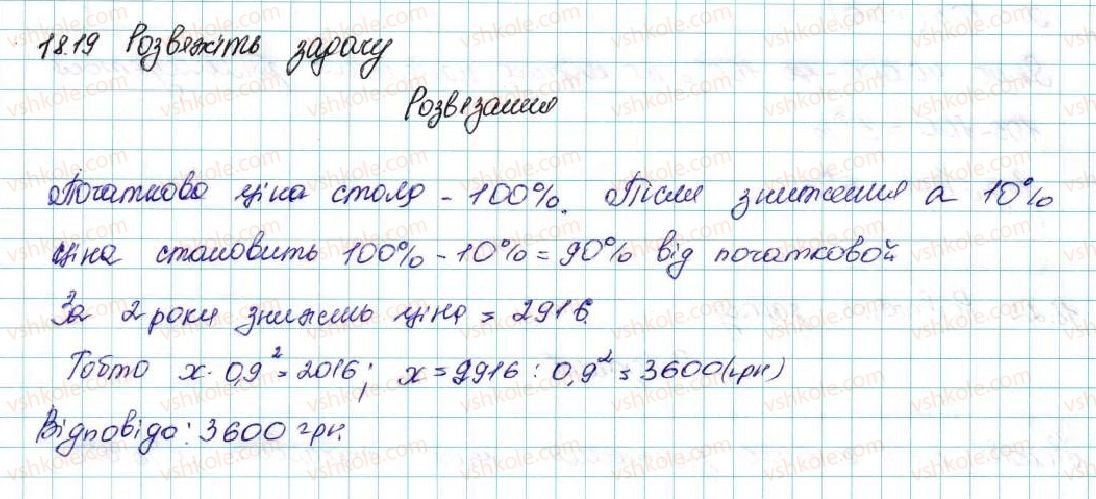 18.19 Розвяжіть задачу
Розвезання
Початкова ціна стола - 100%. Після зниження а 10%
ціна становить 100% - 10% = 90% від початковой
За 2 роки знижень ціна = 2916.
Тобто x · 0,9² = 2016; x = 2916 : 0,9² = 3600 (грн)
Відповідо: 3600 грн.